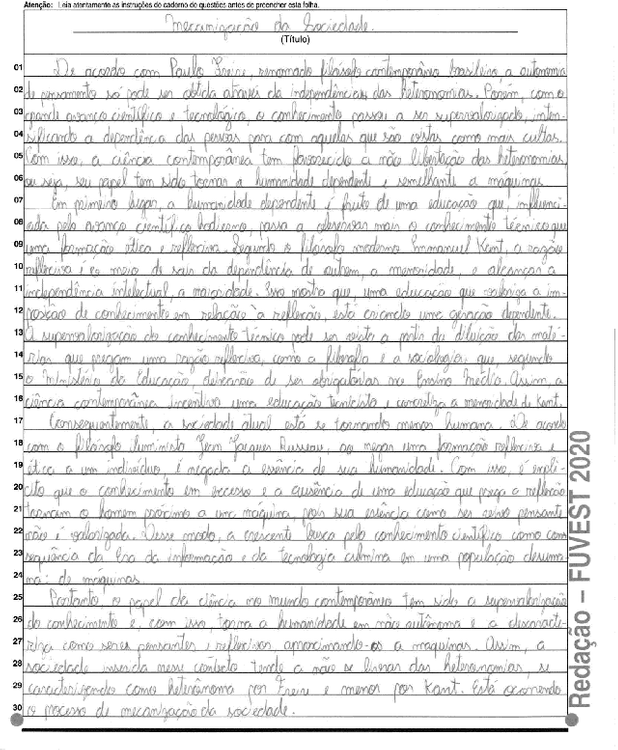 Atenção: Leia atentamente as instruções do caderno de questões antes de preencher esta folha.
Mecanização da Sociedade.
(Título)
01 De acordo com Paulo Freire, renomado filósofo contemporâneo brasileiro a autonomia
02 de pensamento só pode ser obtida através da independência das heteronomias. Porém, com o
03 grande avanço científico e tecnológico, o conhecimento passou a ser supervalorizado, inten-
04 sificando a dependência das pessoas para com aqueles que são vistas como mais cultas.
05 Com isso, a ciência contemporânea tem favorecido a não libertação das heteronomias,
06 ou seja, seu papel tem sido tornar a humanidade dependente e semelhante a máquinas.
07 Em primeiro lugar, a humanidade dependente é fruto de uma educação que, influenci-
08 ada pelo avanço científico hodierno, passa a observar mais o conhecimento técnico que
09 uma formação ética e reflexiva. Segundo o filósofo moderno Emmanuel Kant, a razão
10 reflexiva é o meio de sair da dependência de outrem, a menoridade, e alcançar a
11 independência intelectual, a maioridade. Isso mostra que uma educação que valoriza a im-
12 posição de conhecimento em relação à reflexão, está criando uma geração dependente.
13 A supervalorização do conhecimento técnico pode ser vista a partir da diluição das maté-
14 rias que pregam uma razão reflexiva, como a filosofia e a sociologia, que, segundo
15 o Ministério da Educação, deixarão de ser obrigatórias no Ensino Médio. Assim, a
16 ciência contemporânea incentiva uma educação tecnicista e concretiza a menoridade de Kant.
17 Consequentemente, a sociedade atual está se tornando menos humana. De acordo
18 com o filósofo iluminista Jean Jacques Russeau, ao negar uma formação reflexiva e
19 ética a um indivíduo é negada a essência de sua humanidade. Com isso, é explí-
20 cito que o conhecimento em excesso e a ausência de uma educação que preza a reflexão
21 tornam o homem próximo a uma máquina, pois sua essência como ser pensante
22 não é valorizada. Desse modo, a crescente busca pelo conhecimento científico como con-
23 sequência da Era da informação e da tecnologia culmina em uma população desuma-
24 na: de máquinas.
25 Portanto, o papel da ciência no mundo contemporâneo tem sido a supervalorização
26 do conhecimento e, com isso, torna a humanidade em não autônoma e a descaracte-
27 riza como seres pensantes e reflexivos aproximando-os a maquinas. Assim, a
28 sociedade inserida nesse contexto tende a não se livrar das heteronomias, se
29 caracterizando como heterônoma por Freire e menor por Kant. Está ocorrendo
30 o processo de mecanização da sociedade.
Redação – FUVEST 2020